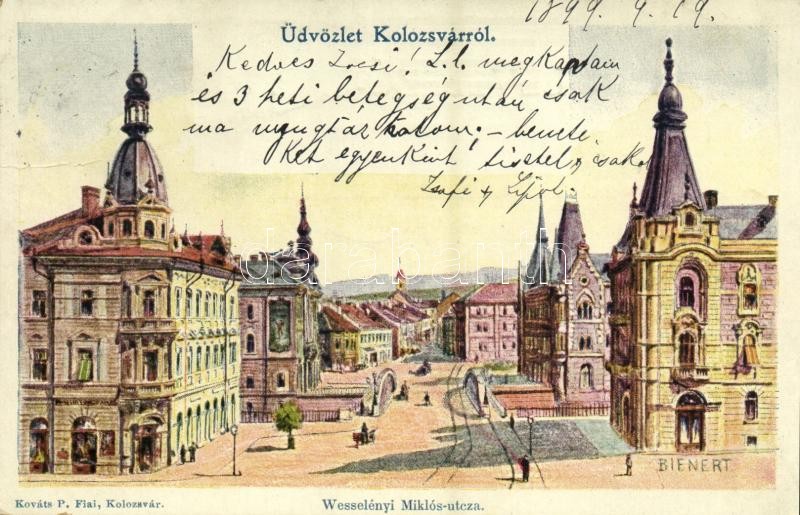 1899. 9. 19.
Üdvözlet Kolozsvárról.
Kedves Zocsi! L. l. megkaptam
és 3 heti betegség után csak
ma
Két egyenkint tisztel, csakol
Zsofi + Lipot.
darabanth
BIENERT
Kováts P. Fiai, Kolozsvár.
Wesselényi Miklós-utcza.